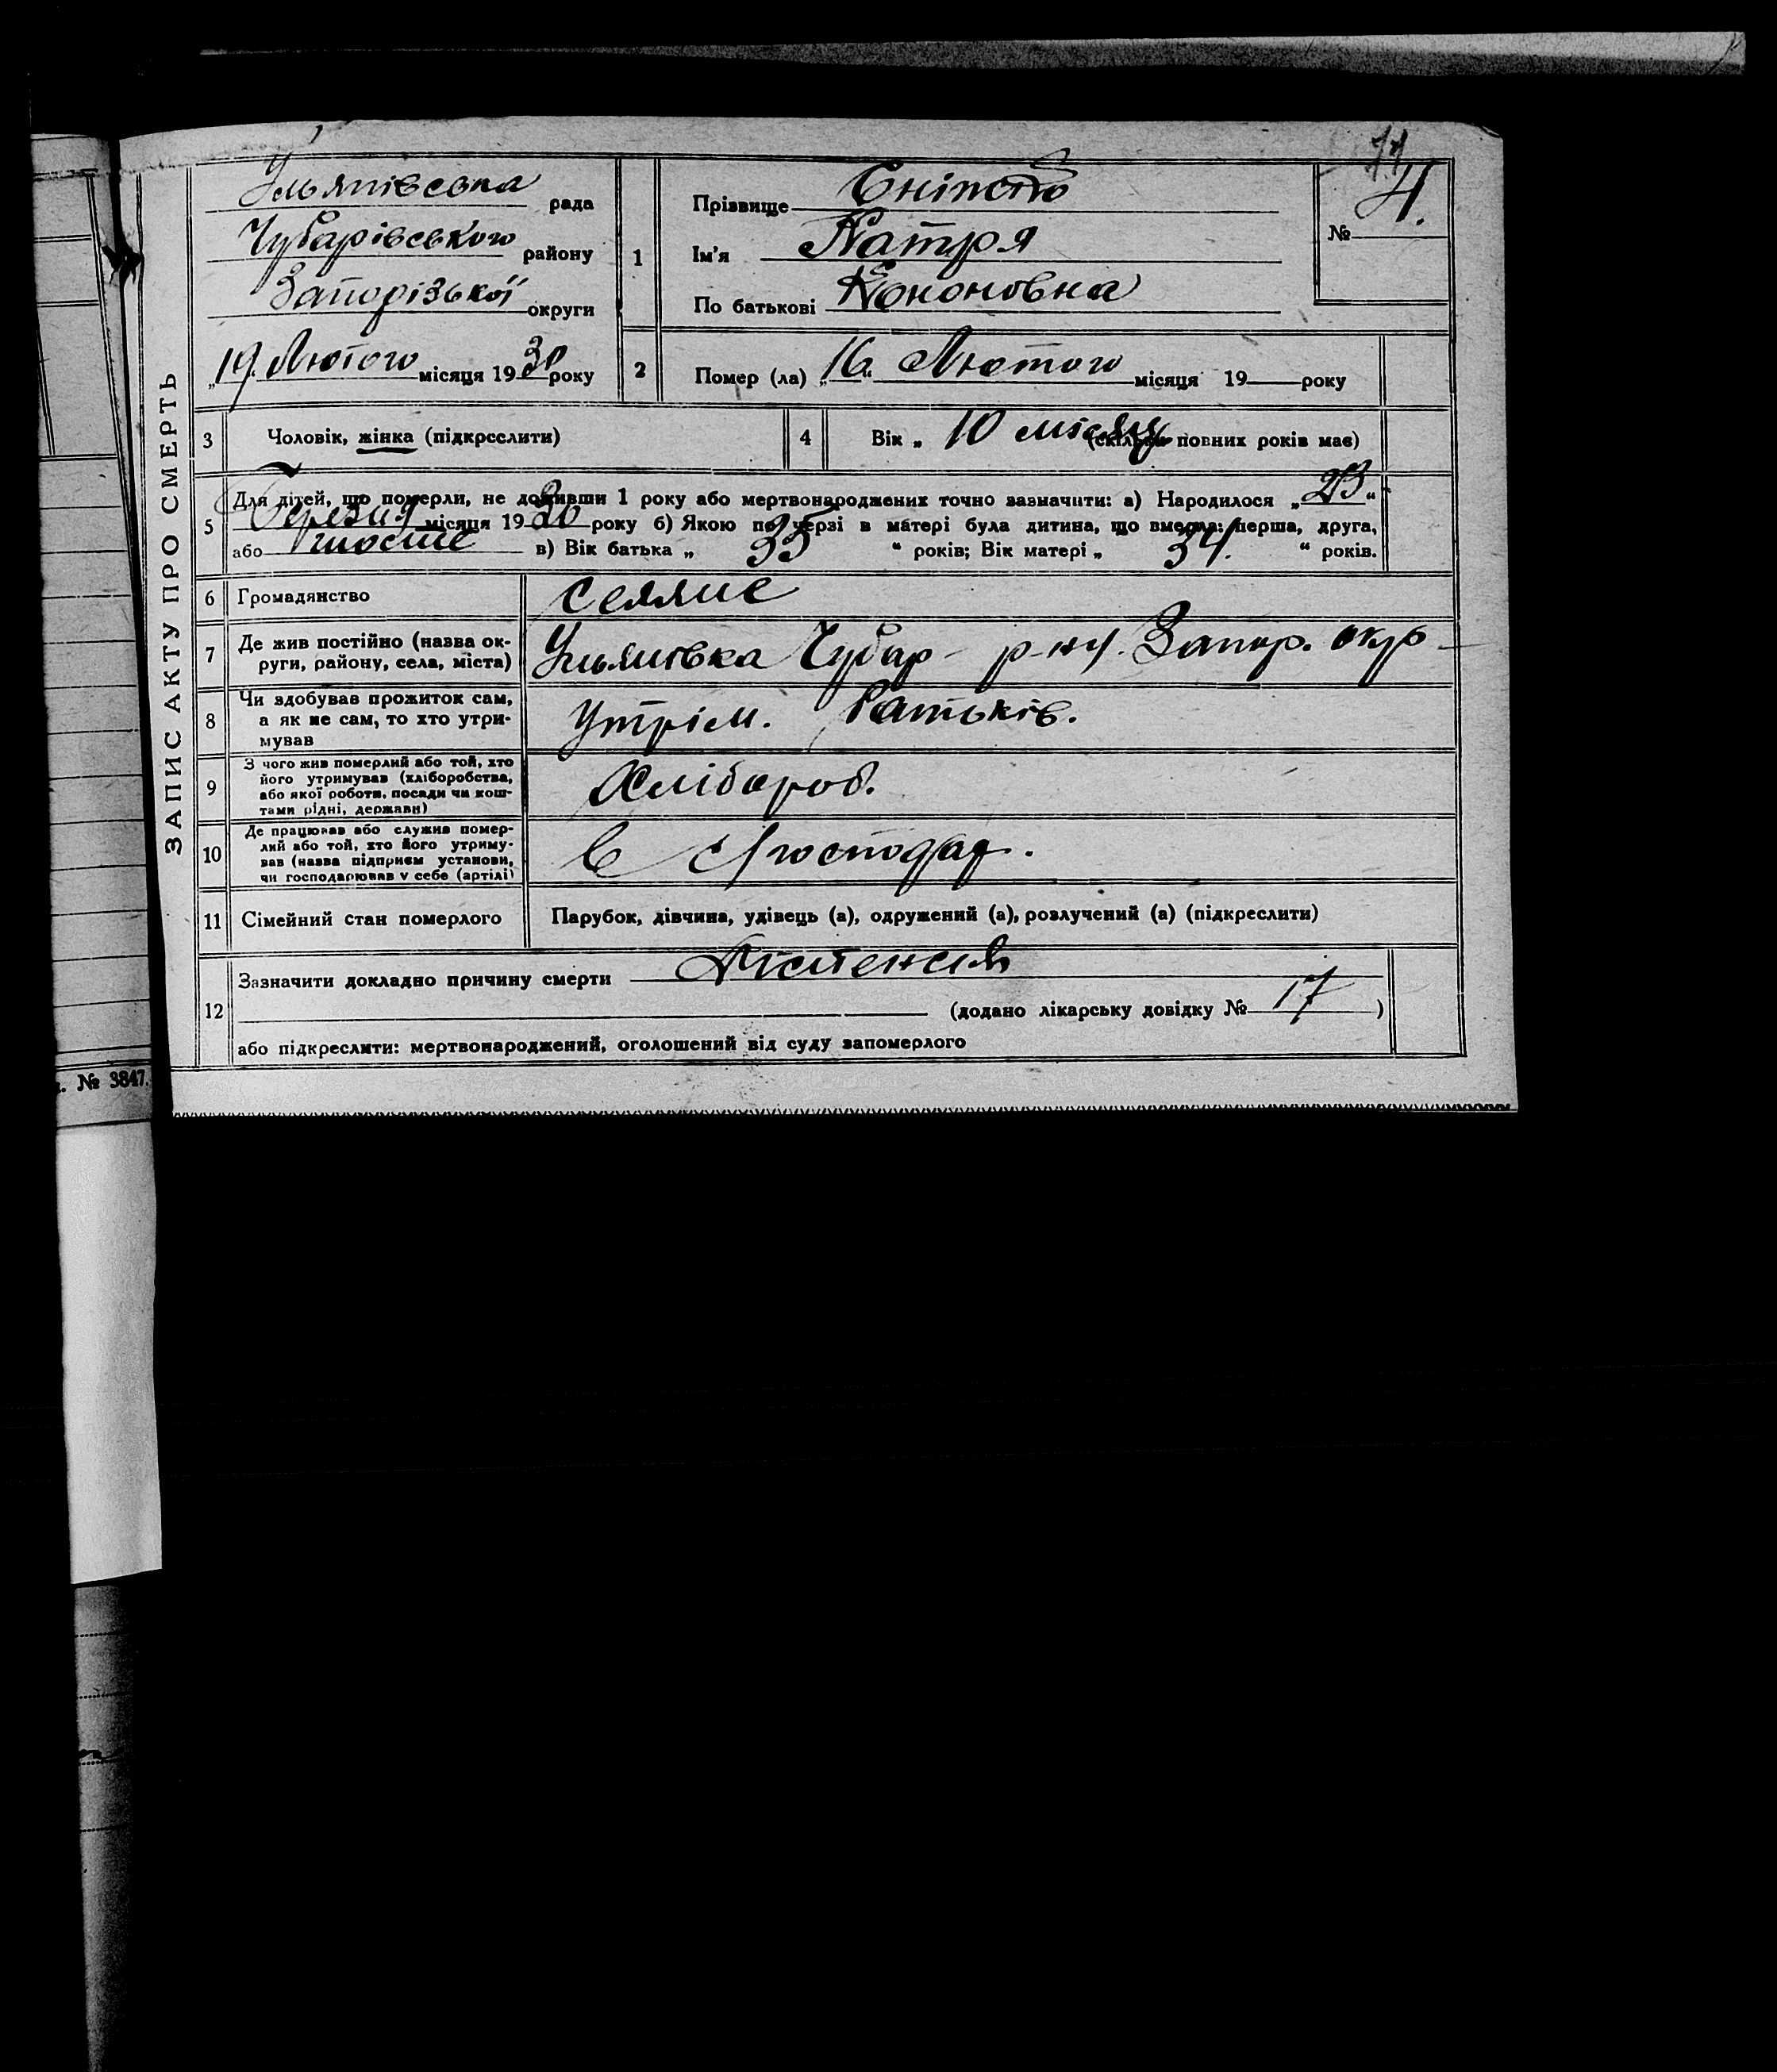 77
Ульянівська рада
Чубарівського району
Запорізької округи
„19„ Лютого місяця 1930 року
ЗАПИС АКТУ ПРО СМЕРТЬ
1
Прізвище
Ім'я Натря
По батькові Кононовна
№ 4.
2
Помер (ла) „16“ Лютого місяця 19 року
3 Чоловік, жінка (підкреслити)
4 Вік „ 10 місяц (скільки повних років має)
5
Для дітей, що померли, не доживши 1 року або мертвонароджених точно зазначити: а) Народилося „23“
Березня місяця 19 року б) Якою по черзі в матері була дитина, що вмерла: перша, друга,
або шосте в) Вік батька „ 35 “ років; Вік матері „ 34. “ років.
6 Громадянство селяне
7 Де жив постійно (назва ок-
руги, району, села, міста)
Ульянівка Чубар- р-ну. Запор. окр-
8 Чи здобував прожиток сам,
а як не сам, то хто утри-
мував
Утрім. Батьків.
9 З чого жив померлий або той, хто
його утримував (хліборобства,
або якої роботи, посади чи кош-
тами рідні, держави)
Хлібороб.
10 Де працював або служив помер-
лий або той, хто його утриму-
вав (назва підприєм установи,
чи господарював у себе (артілі)
в с/господар.
11 Сімейний стан померлого
Парубок, дівчина, удівець (а), одружений (а), розлучений (а) (підкреслити)
12
Зазначити докладно причину смерти
(додано лікарську довідку № 17 )
або підкреслити: мертвонароджений, оголошений від суду запомерлого
. № 3847.